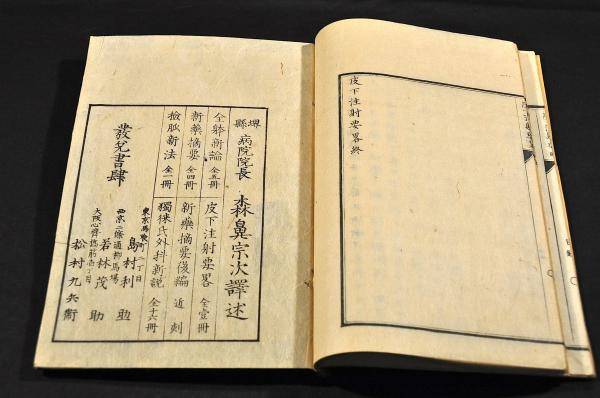 皮下注射要畧終
堺縣病院院長 森鼻宗次譯述
全躰新論 全五冊
皮下注射要畧 全壹冊
新藥摘要 全四冊
新藥摘要後編 近刻
檢脈新法 全一冊
獨徠氏外科新説 全十六冊
發兌書肆
東京馬喰町二丁目
島村利助
西京二條通柳馬場
若林茂助
大阪心齋橋筋壱丁目
松村九兵衛